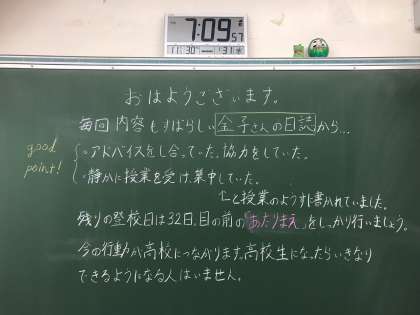 7:09 57
11:30 31
おはようございます。
毎回内容もすばらしい金子さんの日誌から…
good point!
・アドバイスをし合っていた、協力をしていた。
・静かに授業を受け、集中していた。
と授業のようすに書かれていました。
残りの登校日は32日。目の前の「あたりまえ」をしっかり行いましょう。
今の行動が高校につながります。高校生になったらいきなり
できるようになる人はいません。